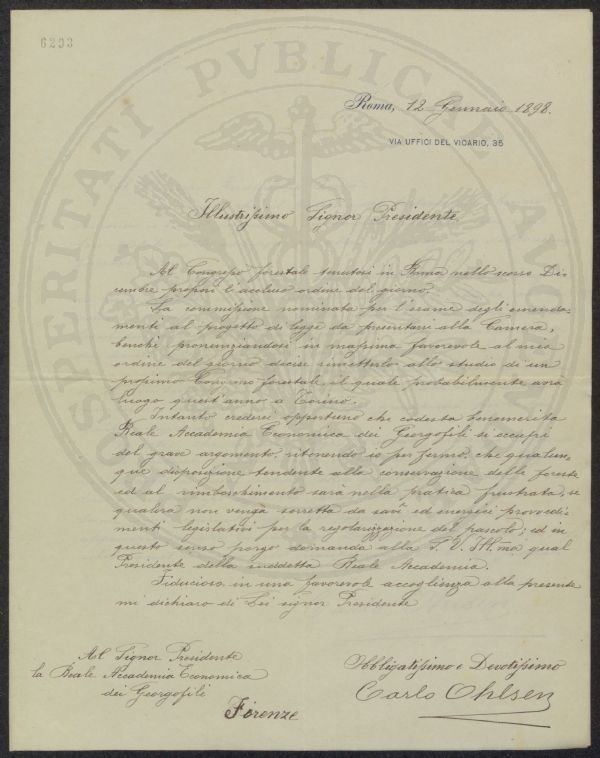 6293
Roma, 12 Gennaio 1898.
VIA UFFICI DEL VICARIO, 35
Illustrissimo Signor Presidente
Al Congresso forestale tenutosi in Roma nello scorso Di-
cembre proposi l'accluso ordine del giorno.
La commissione nominata per l'esame degli emenda-
menti al progetto di legge da presentare alla Camera,
benchè pronunziandosi in massima favorevole al mio
ordine del giorno decise rimetterlo allo studio di un
prossimo Congresso forestale il quale probabilmente avrà
luogo quest'anno a Torino.
Intanto crederei opportuno che codesta benemerita
Reale Accademia Economica dei Georgofili si occupi
del grave argomento, ritenendo io per fermo, che qualun-
que disposizione tendente alla conservazione delle foreste
ed al rimboschimento sarà nella pratica frustrata, se
qualora non venga sorretta da savî ed energici provvedi-
menti legislativi per la regolarizzazione del pascolo; ed in
questo senso porgo domanda alla S. V. Ill.ma qual
Presidente della suddetta Reale Accademia.
Fiducioso in una favorevole accoglienza alla presente
mi dichiaro di Lei signor Presidente
Al Signor Presidente
la Reale Accademia Economica
dei Georgofili
Firenze
Obbligatissimo e Devotissimo
Carlo Ohlsen
PROSPERITATI PVBLICAE AVGENDAE